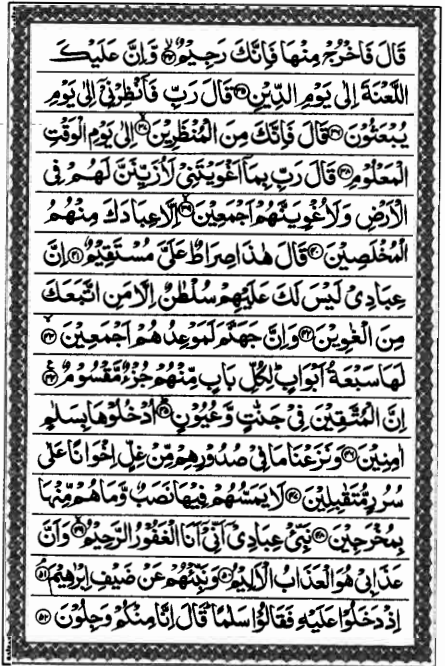 قَالَ فَاخْرُجْ مِنْهَا فَاِنَّكَ رَجِيْمٌ ۙ﴿۳۴﴾ وَّاِنَّ عَلَيْكَ
اللَّعْنَةَ اِلٰى يَوْمِ الدِّيْنِ ﴿۳۵﴾ قَالَ رَبِّ فَاَنْظِرْنِيْٓ اِلٰى يَوْمِ
يُبْعَثُوْنَ ﴿۳۶﴾ قَالَ فَاِنَّكَ مِنَ الْمُنْظَرِيْنَ ۙ﴿۳۷﴾ اِلٰى يَوْمِ الْوَقْتِ
الْمَعْلُوْمِ ﴿۳۸﴾ قَالَ رَبِّ بِمَآ اَغْوَيْتَنِيْ لَاُزَيِّنَنَّ لَهُمْ فِى
الْاَرْضِ وَلَاُغْوِيَنَّهُمْ اَجْمَعِيْنَ ۙ﴿۳۹﴾ اِلَّا عِبَادَكَ مِنْهُمُ
الْمُخْلَصِيْنَ ﴿۴۰﴾ قَالَ هٰذَا صِرَاطٌ عَلَىَّ مُسْتَقِيْمٌ ﴿۴۱﴾ اِنَّ
عِبَادِيْ لَيْسَ لَكَ عَلَيْهِمْ سُلْطٰنٌ اِلَّا مَنِ اتَّبَعَكَ
مِنَ الْغٰوِيْنَ ﴿۴۲﴾ وَاِنَّ جَهَنَّمَ لَمَوْعِدُهُمْ اَجْمَعِيْنَ ۙ﴿۴۳﴾
لَهَا سَبْعَةُ اَبْوَابٍ ؕ لِكُلِّ بَابٍ مِّنْهُمْ جُزْءٌ مَّقْسُوْمٌ ﴿۴۴﴾
اِنَّ الْمُتَّقِيْنَ فِيْ جَنّٰتٍ وَّعُيُوْنٍ ؕ﴿۴۵﴾ اُدْخُلُوْهَا بِسَلٰمٍ
اٰمِنِيْنَ ﴿۴۶﴾ وَنَزَعْنَا مَا فِيْ صُدُوْرِهِمْ مِّنْ غِلٍّ اِخْوَانًا عَلٰى
سُرُرٍ مُّتَقٰبِلِيْنَ ﴿۴۷﴾ لَا يَمَسُّهُمْ فِيْهَا نَصَبٌ وَّمَا هُمْ مِّنْهَا
بِمُخْرَجِيْنَ ﴿۴۸﴾ نَبِّئْ عِبَادِيْٓ اَنِّيْٓ اَنَا الْغَفُوْرُ الرَّحِيْمُ ۙ﴿۴۹﴾ وَاَنَّ
عَذَابِيْ هُوَ الْعَذَابُ الْاَلِيْمُ ﴿۵۰﴾ وَنَبِّئْهُمْ عَنْ ضَيْفِ اِبْرٰهِيْمَ ۘ﴿۵۱﴾
اِذْ دَخَلُوْا عَلَيْهِ فَقَالُوْا سَلٰمًا ؕ قَالَ اِنَّا مِنْكُمْ وَجِلُوْنَ ﴿۵۲﴾